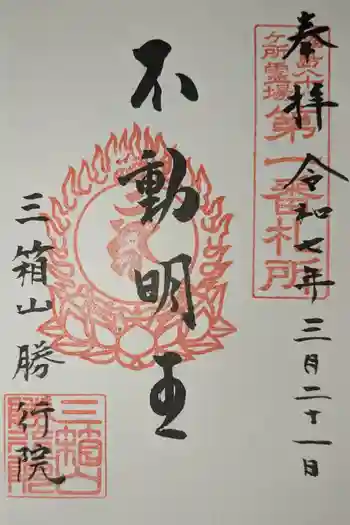 奉拝 令和七年三月二十一日
八十八ヶ所霊場
第一番札所
不動明王
三箱山勝行院
三箱山
勝行院